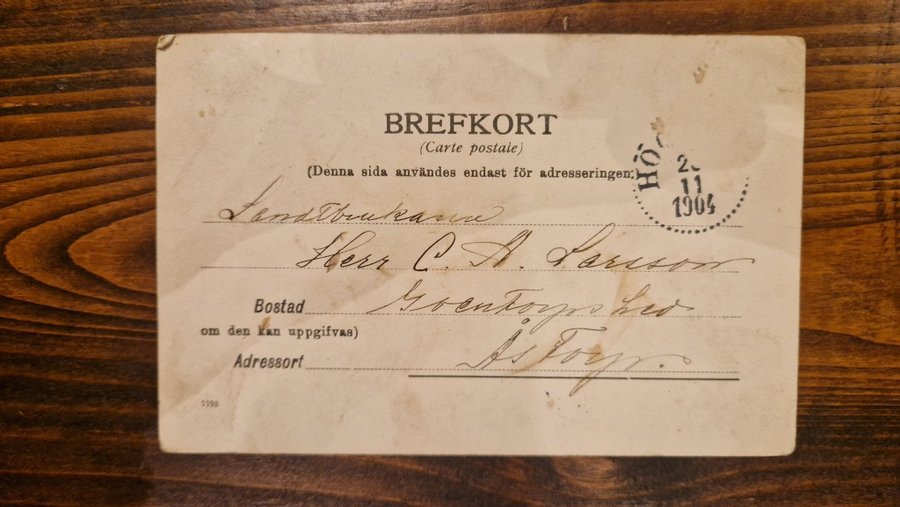 BREFKORT
(Carte postale)
(Denna sida användes endast för adresseringen)
HÖ
11
1904
Herr C. A. Larsson
Bostad
om den kan uppgifvas)
Adressort Åstorp.